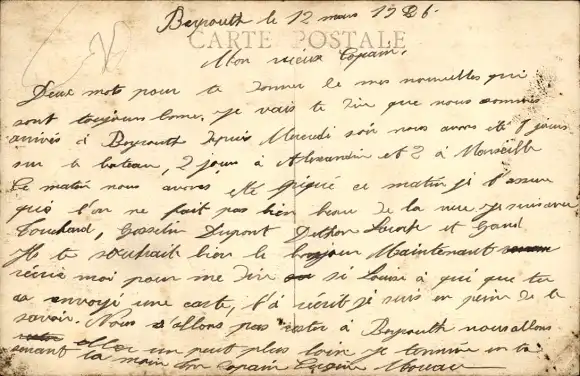 Beyrouth le 12 mars 1926.
CARTE POSTALE
Mon vieux Copain,
Deux mot pour te donner de mes nouvelles qui
sont toujours bonne. je vais te dire que nous sommes
arrivés à Beyrouth depuis Mercredi soir nous avons été 8 jours
sur le bateau, 2 jours à Alexandrie et 2 à Marseille
Ce matin nous avons été piqué ce matin je t'assure
que l'on ne fait pas bien beau de la vue je suis avec
Touchard, Gosselin Dupont Lacoste et Gaud
Il te souhait bien le bonjour Maintenant
récrie moi pour me dire si Louise à qui que tu
as envoyé une carte, t'a récrit je suis en peine de le
savoir. Nous n'allons pas rester à Beyrouth nous allons
aller un peut plus loin je termine en te
serrant la main ton Copain Moreau